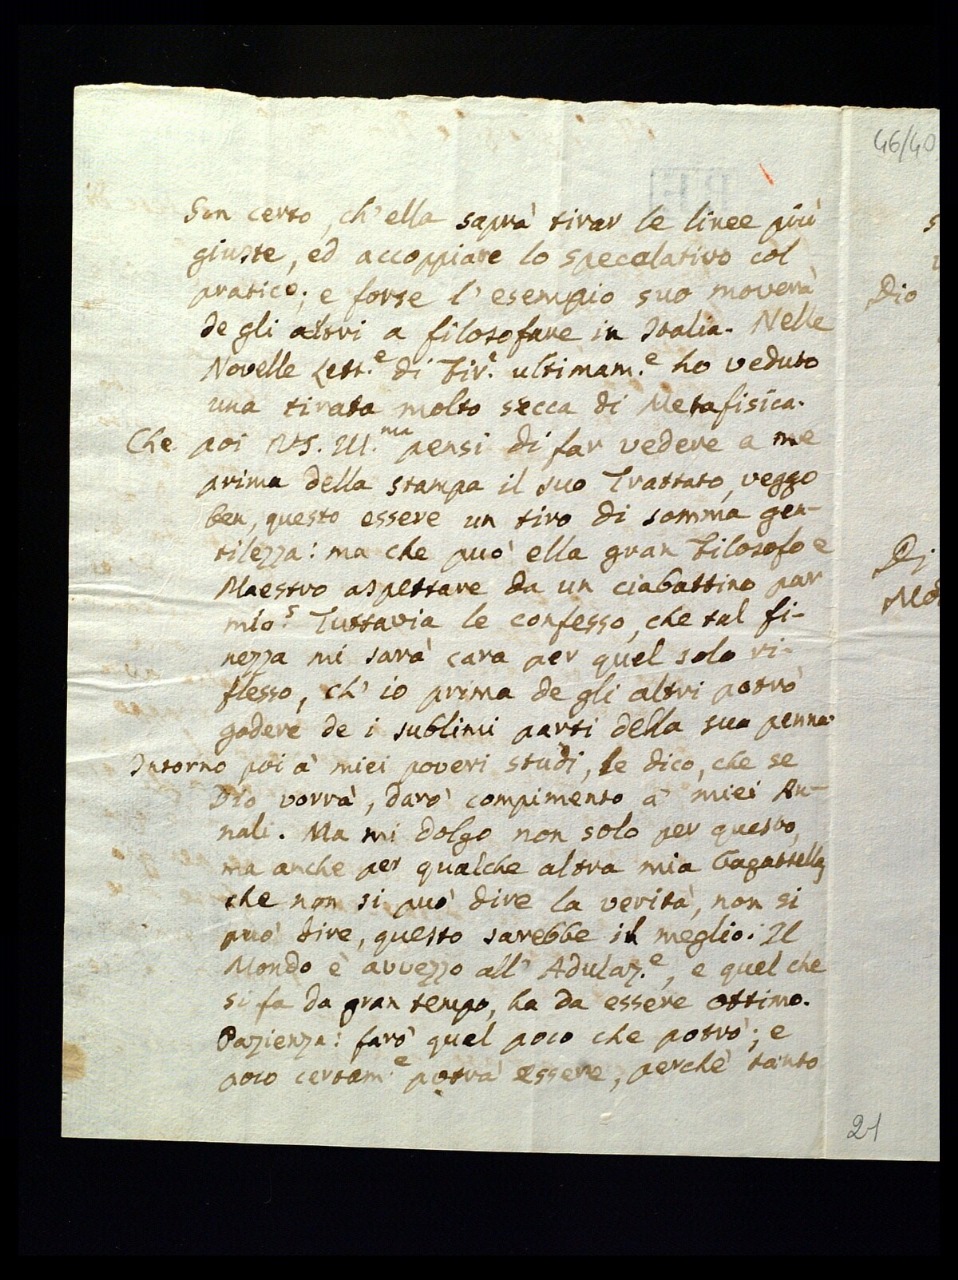 46/40
Son certo, ch' ella saprà tirar le linee più
giuste, ed accoppiare lo specolativo col
pratico; e forse l' esempio suo moverà
degli altri a filosofare in Italia. Nelle
Novelle Lett.e di Fir.e ultimam.e ho veduto
una tirata molto secca di Metafisica.
Che poi VS. Ill.ma pensi di far vedere a me
prima della stampa il suo Trattato, veggo
ben, questo essere un tiro di somma gen-
tilezza: ma che può ella gran Filosofo e
Maestro aspettare da un ciabattino par
mio? Tuttavia le confesso, che tal fi-
nezza mi sarà cara per quel solo ri-
flesso, ch' io prima degli altri potrò
godere de i sublimi parti della sua penna.
Intorno poi a' miei poveri studi, le dico, che se
Dio vorrà, darò compimento a' miei An-
nali. Ma mi dolgo non solo per questo,
ma anche per qualche altra mia bagattella,
che non si può dire la verità, non si
può dire, questo sarebbe il meglio. Il
Mondo è avvezzo all' Adulaz.e, e quel che
si fa da gran tempo, ha da essere ottimo.
Pazienza: farò quel poco che potrò; e
poco certam.e potrà essere, perchè tanto
Dio
Di
21